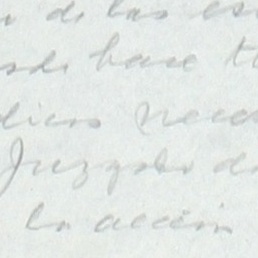 de las es
sde hace t
dicos nece
Juzgado d
la acción